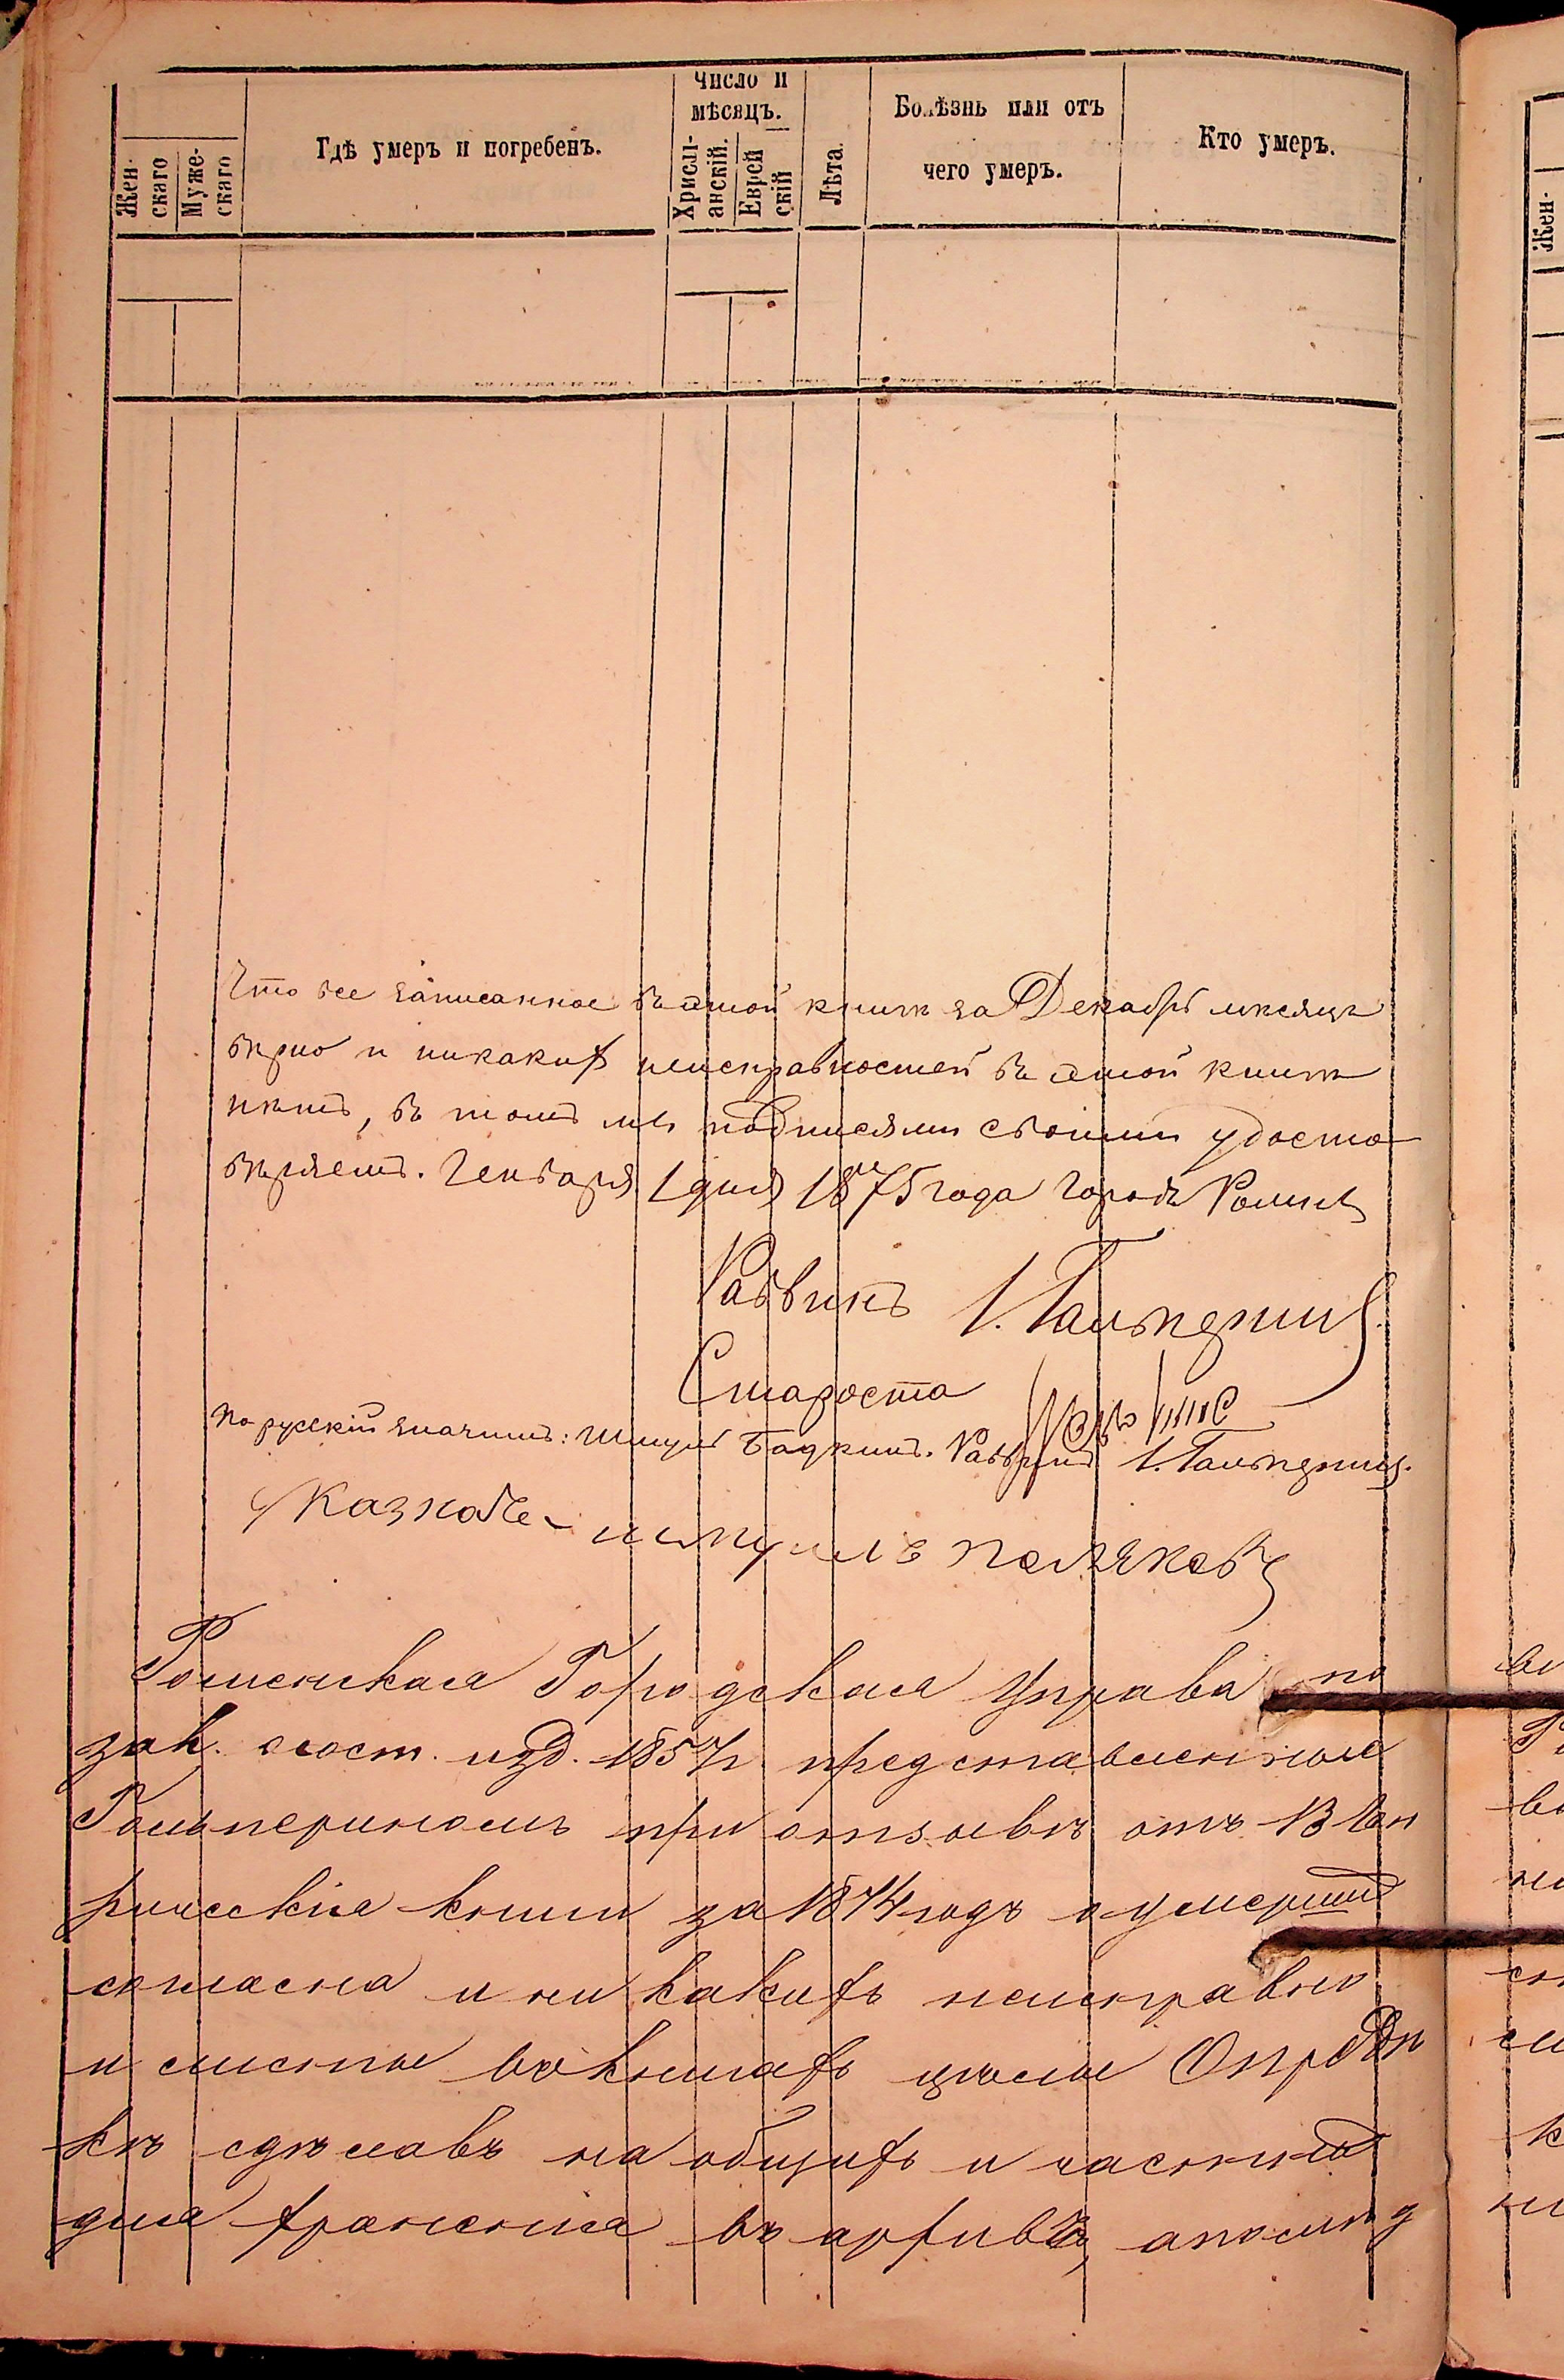 Число и
мѣсяцъ.
Жен-
скаго
Муже-
скаго
Гдѣ умеръ и погребенъ.
Христі-
анскій.
Еврей
скій
Лѣта.
Болѣзнь или отъ
чего умеръ.
Кто умеръ.
Что все записанное въ этой книгѣ за Декабрь мѣсяцъ
вѣрно и никакихъ неисправностей въ этой книгѣ
нѣтъ, въ томъ мы подписями своими удосто-
вѣряемъ. Генваря 1 дня 1875 года Городъ Ромны
Раввинъ І. Гальперинъ.
Староста
По русскій значитъ: Шмуй Бадкинъ. Раввинъ І. Гальперинъ.
Казначе- Шмуилъ Поляковъ
Роменская Городская Управа по
зак. сост. изд. 1857 г. представленные
Гальпериномъ при отзывѣ отъ 13 Ген
рическія книги за 1874 годъ о умерших
согласна и ни какихъ неисправно
и листы въ книгахъ цѣлы Опредѣ
кѣ сдѣлавъ на общихъ и частных
для храненія въ архивѣ, а послѣд
Жен-